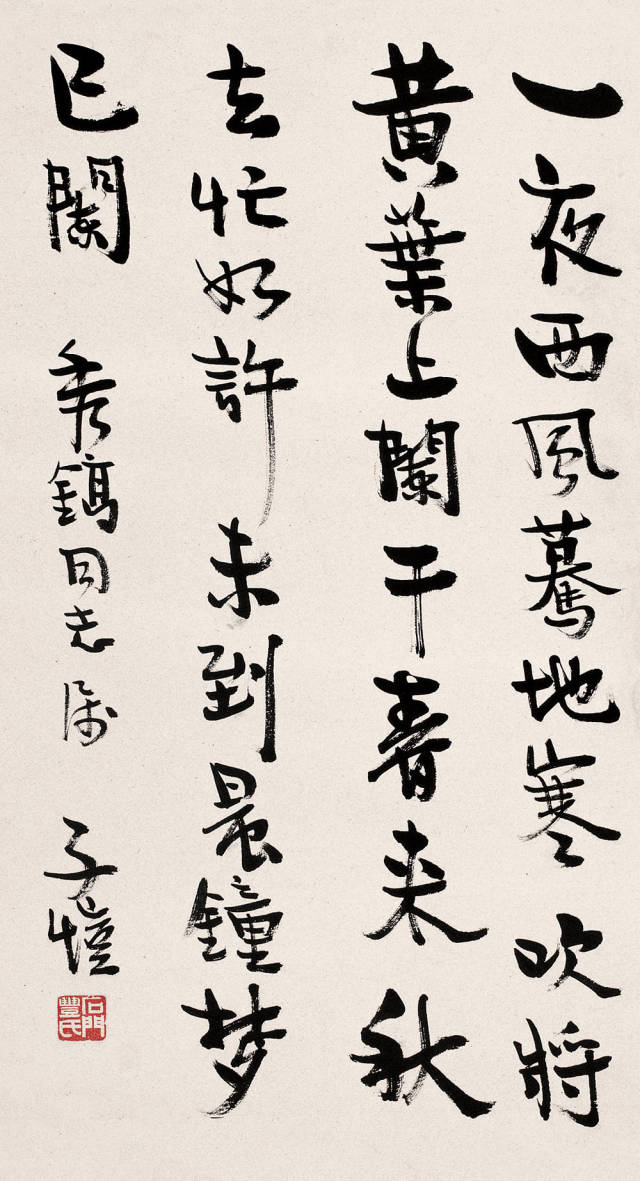 一夜西風驀地寒吹將
黃葉上闌干春来秋
去忙如許未到晨鐘梦
已闌 秀鎬同志屬 子愷
石門豐氏